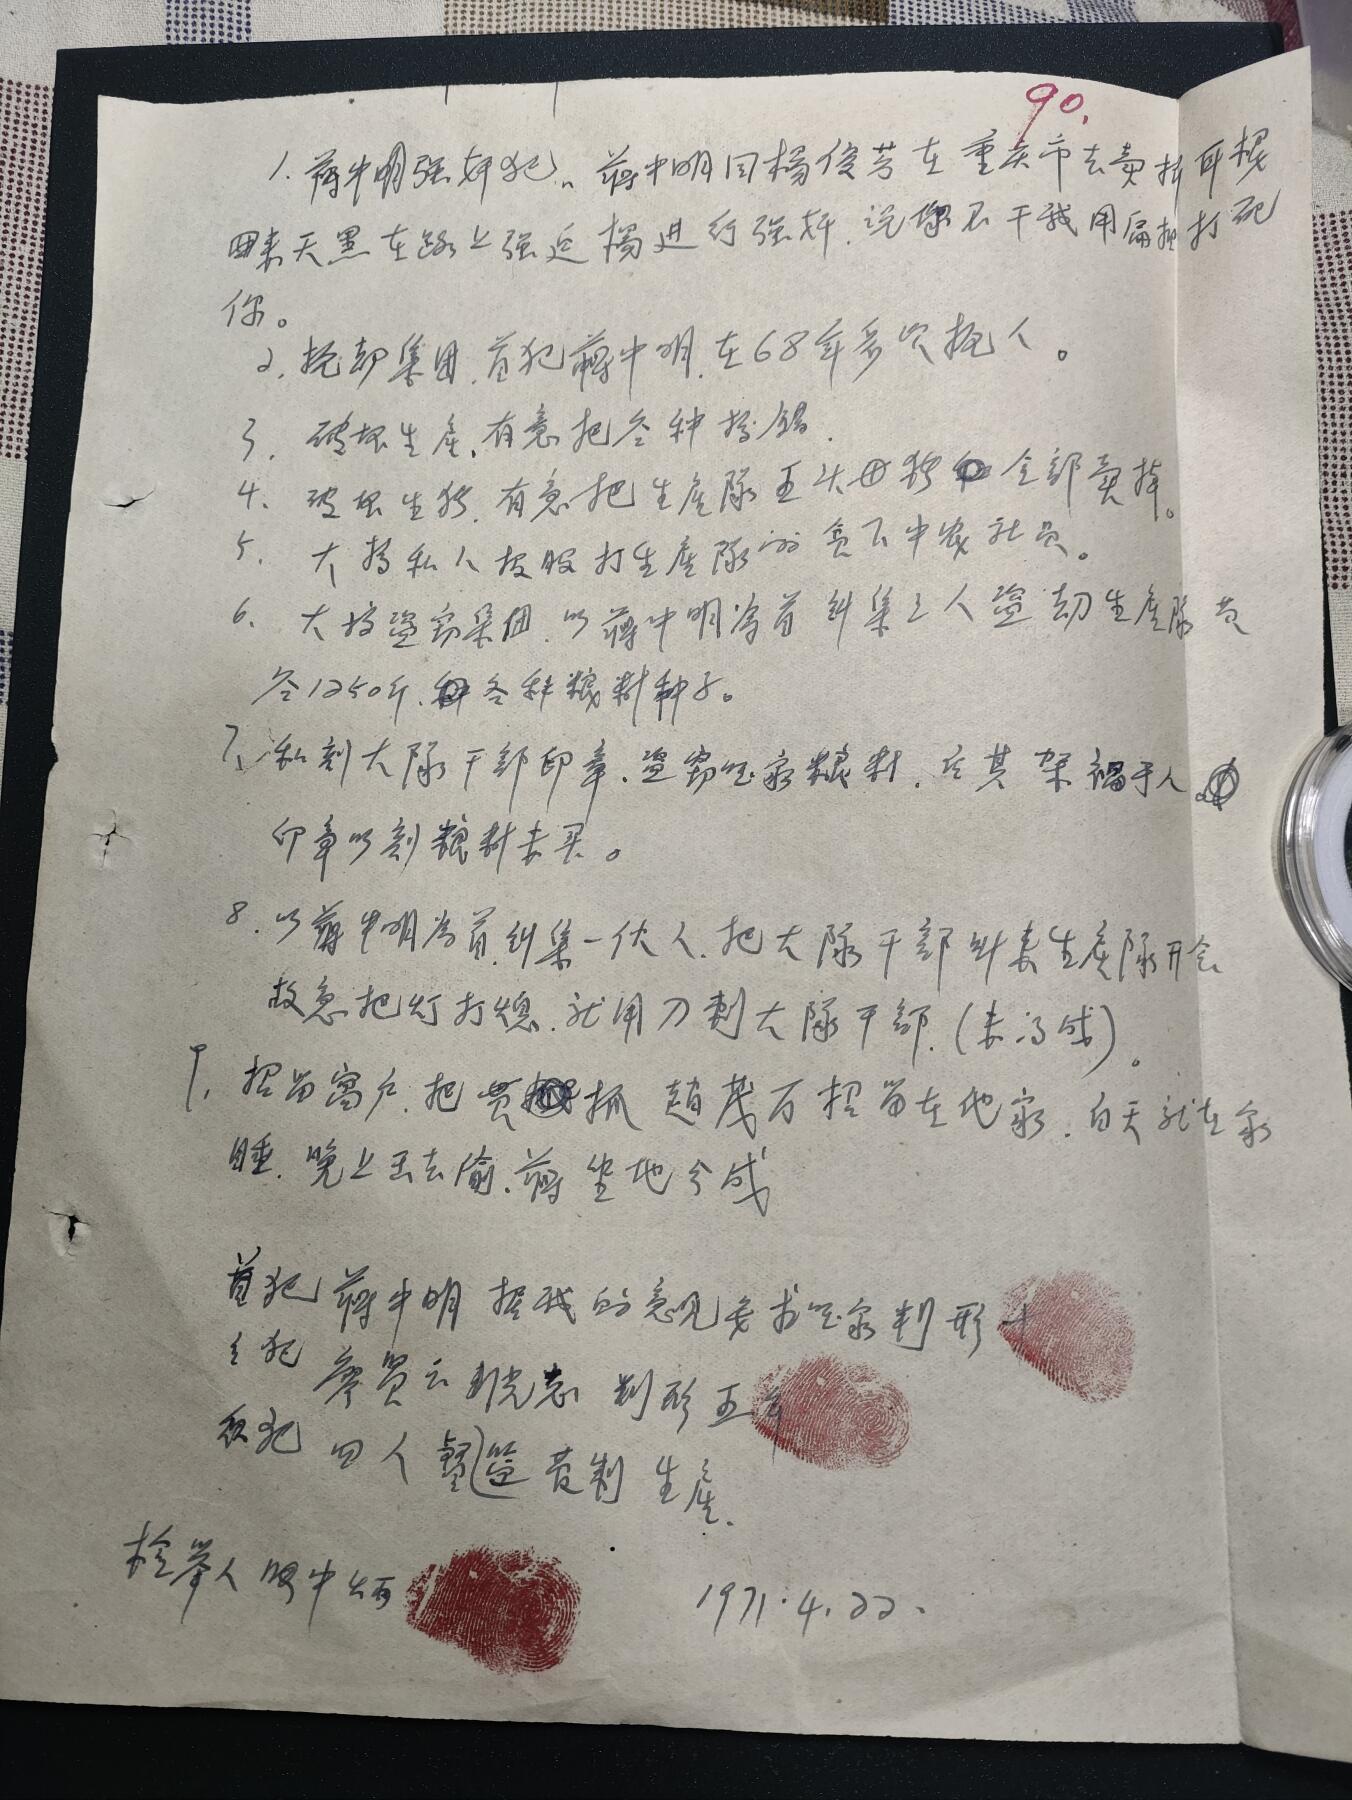 90.
1. 蒋中明强奸犯。蒋中明同楊俊芳在重庆市去卖
回来天黑在路上强迫楊进行强奸.说你不干我用扁担打死
你。
2. 抢劫集团.首犯蒋中明.在68年多次抢人。
3. 破坏生產.有意把谷种搞错.
4. 破坏生猪.有意把生產隊五头母猪全部卖掉。
5. 大搞私人投股打生產隊的贫下中农社员。
6. 大搞盗窃集团.以蒋中明为首纠集三人盗劫生產隊黄
谷1250斤.各种粮料种子。
7. 私刻大隊干部印章.盗窃国家粮料.在其架禍于人.
印章以刻粮料未买。
8. 以蒋中明为首.纠集一伙人.把大隊干部叫来生產隊开会
故意把灯打熄.就用刀刺大隊干部.(未为成)。
9. 招留窝户.把抓趙茂万招留在他家.白天就在家
睡.晚上出去偷.蒋坐地分成
首犯 蒋中明 按我的意见要求国家判形十
犯 廖贤云 刘光志 判形五年
犯 四人 管制生產.
检举人 中炳 1971.4.22.